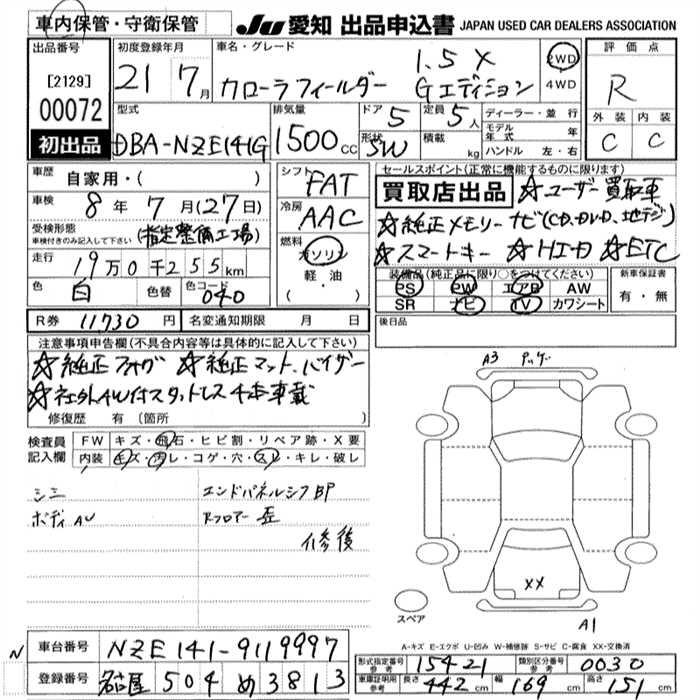 車内保管・守衛保管
JU 愛知 出品申込書 JAPAN USED CAR DEALERS ASSOCIATION
出品番号
[2129]
00072
初出品
初度登録年月
21 7月
車名・グレード
カローラフィールダー 1.5X
Gエディション
2WD
4WD
評価点
R
外装 内装
C C
型式
DBA-NZE141G
排気量
1500cc
ドア 5
形状 SW
定員 5人
積載 kg
ディーラー・並行
モデル年式 年
ハンドル 左・右
車歴 自家用・( )
車検 8年7月(27日)
受検形態 (指定整備工場)
車検付きのみ記入して下さい
走行 19万0千255km
色 白 色替 色コード 040
シフト FAT
冷房 AAC
燃料 ガソリン
軽・油
( ・ )
セールスポイント(正常に機能するものに限ります)
買取店出品 ☆ユーザー買取車
☆純正メモリーナビ(CD.DVD.地デジ)
☆スマートキー ☆HID ☆ETC
装備品(純正品に限り○をつけてください)
PS PW エアB AW
SR ナビ TV カワシート
新車保証書
有・無
R券 11730円 名変通知期限 月 日
後日品
注意事項申告欄(不具合内容等は具体的に記入して下さい)
☆純正フォグ ☆純正マット.バイザー
☆社外AW付スタッドレス4本車載
修復歴 有 〔箇所
検査員記入欄
FW キズ・飛石・ヒビ割・リペア跡・X要
内装 キズ・汚レ・コゲ・穴・スレ・キレ・破レ
シミ エンドパネルシフBP
ボディAU Rフロアー歪
修復
A3
XX
スペア
A1
A-キズ E-エクボ U-凹み W-補修跡 S-サビ C-腐食 XX-交換済
N
車台番号 NZE141-9119997
登録番号 名古屋 504 め 3813
形式指定番号 参考 15421 類別区分番号 参考 0030
車庫証明用 参考 長さ 442cm 幅 169cm 高さ 151cm